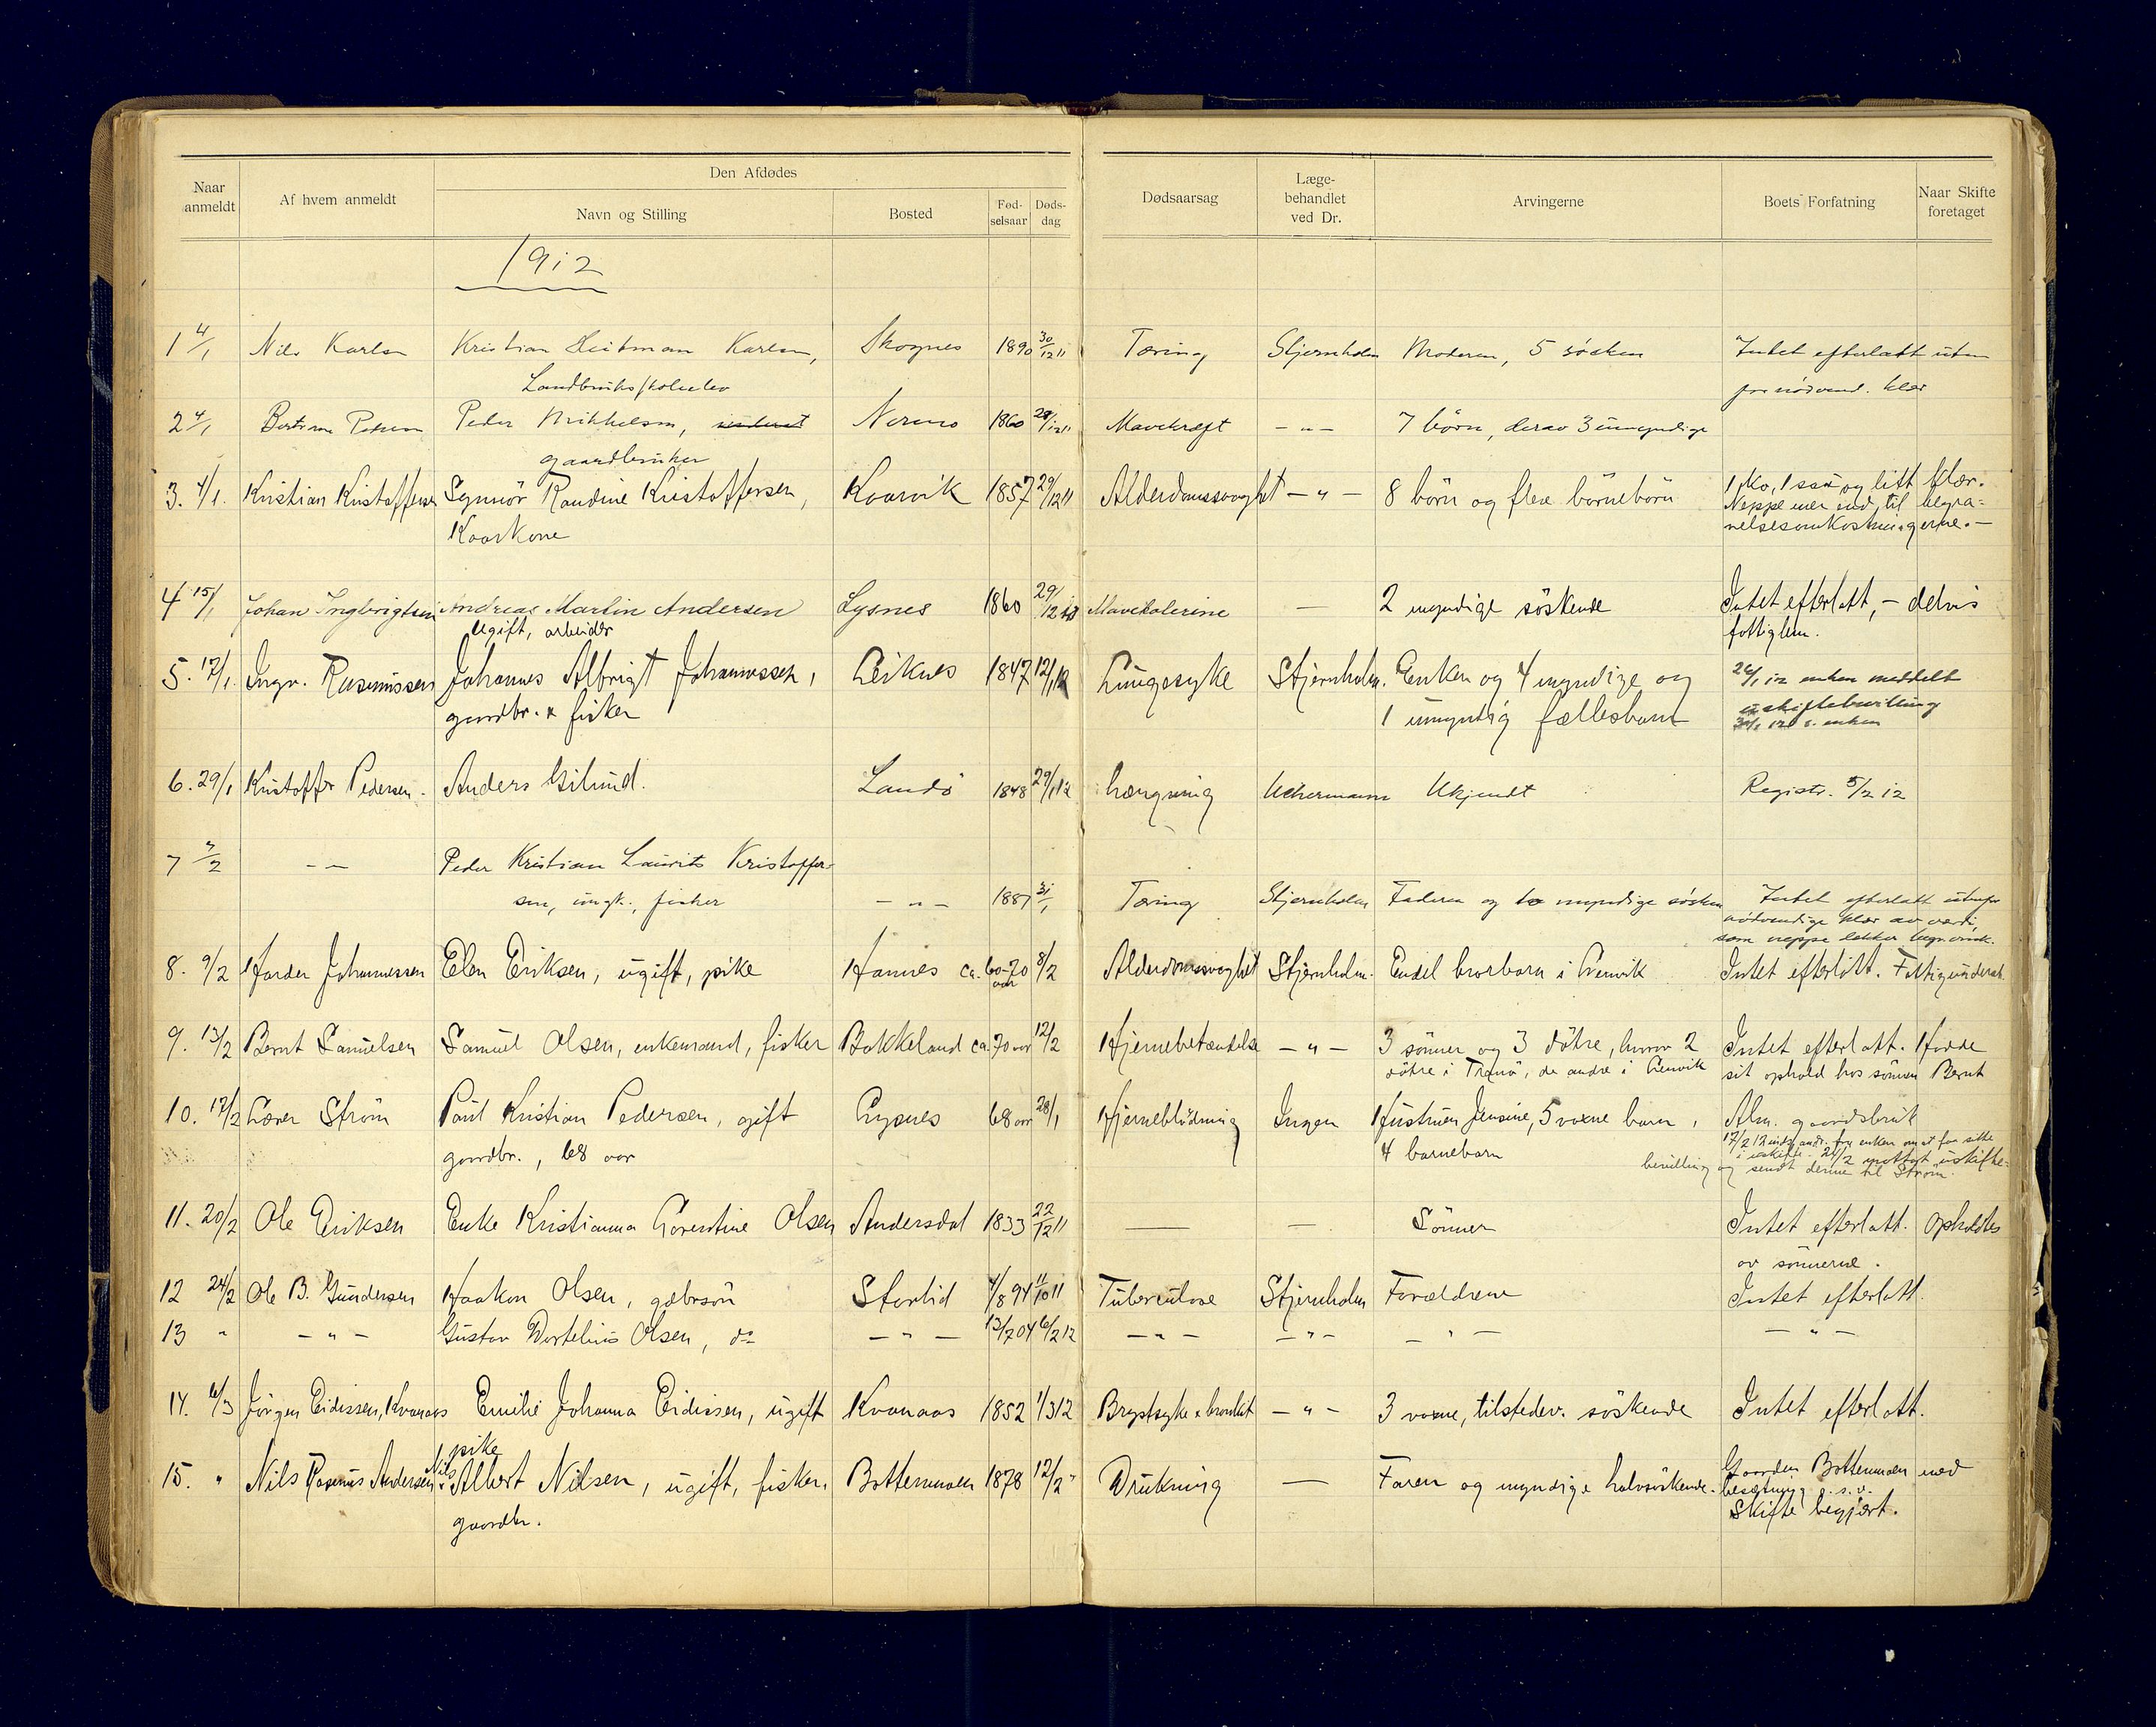 Naar anmeldt | Af hvem anmeldt | Den Afdødes | Navn og Stilling | Bosted | Fød-selsaar | Døds-dag | Dødsaarsag | Læge-behandlet ved Dr. | Arvingerne | Boets Forfatning | Naar Skifte foretaget
1912
1 4/1 Nils Karlsen Kristian Heitman Karlsen, Skognes 1890 30/12 11 Tæring Stjernholm Moderen, 5 søsken Intet efterlatt uten
Landbruksskoleelev nødvend. klær
2 4/1 Peder Mikkelsen, 1860 Mavekræft - " - 7 børn, derav 3 umyndige
gaardbruker
3. 4/1. Kristian Kristoffersen Synnør Randine Kristoffersen, Kaarvik 1857 29/12 11 Alderdomssvaghet - " - 8 børn og flere børnebørn 1 ko, 1 sau og litt klær.
Neppe mer end til begra-
Kaarkone velsesomkostningerne. -
4 15/1 Johan Ingebrigtsen Andreas Martin Andersen Lysnes 1860 29/12 Mavekolerine — 2 myndige søskende Intet efterlatt, - delvis
Ugift, arbeider fattiglem.
5. 17/1. Ingv. Rasmussen Johannes Albrigt Johannessen, Leiknes 1847 12/1 12 Lungesyke Stjernholm. Enken og 4 myndige og 26/1 12 enken meddelt
gaardbr. & fisker 1 umyndig fællesbarn uskiftebevilling
6. 29/1 Kristoffer Pedersen. Anders Gilund. Landø 1848 29/1 12 hængning Uchermann Ukjendt Registr. 5/2 12
7 - - Peder Kristian Laurits Kristoffer-
sen, ungk., fisker - " - 1887 31/1 Tæring Stjernholm Faderen og to myndige søsken Intet efterlatt
nødvendige klær av værdi,
som neppe dekker
8. 9/2 Hardar Johannessen Elen Eriksen, ugift, pike Hannes ca. 60-70 aar 8/2 Alderdomssvaghet Stjernholm. Endel brorbarn i Lenvik Intet efterlatt. Fattigunderst.
9. 13/2 Bernt Samuelsen Samuel Olsen, enkemand, fisker Bakkeland ca. 70 aar 12/2 Hjernebetændelse - " - 3 sønner og 3 døtre, hvorav 2 Intet efterlatt. Hadde
døtre i Tranø, de andre i Lenvik sit ophold hos sønnen Bernt
10. 17/2 Lærer Strøm Paul Kristian Pedersen, gift Lysnes 68 aar 28/1 Hjerneblødning Ingen Hustruen Jensine, 5 voxne barn, Alm. gaardsbruk
gaardbr., 68 aar 4 barnebarn 17/2 12 indg. andr. fra enken om at faa sitte
i uskifte. 24/2 mottat uskifte-
bevilling og sendt denne til Strøm.
11. 20/2 Ole Eriksen Enke Kristianna Lorentine Olsen Andersdal 1833 22/12 11 — — Sønner Intet efterlatt. Opholdtes
av sønnerne.
12 24/2 Ole B. Gundersen Haakon Olsen, gdbrsøn Storlid 4/8 94 11/10 11 Tuberculose Stjernholm Forældrene Intet efterlatt.
13 " - " - Gustav Olsen, do - " - 13/2 04 6/2 12 - " - - " - - " - - " -
14. 6/3 Jørgen Eidissen, Kvanaas Emilie Johanna Eidissen, ugift Kvanaas 1852 1/3 12 Brystsyke & bronkit - " - 3 voxne, tilstedev. søskende Intet efterlatt.
pike
15. " Nils Rasmus Andersen Nils Albert Nilsen, ugift, fisker, Bottenmoen 1878 12/2 " Drukning — Faren og myndige halvsøskende. Gaarden Bottenmoen med
gaardbr. besætning o.s.v.
Skifte begjært.